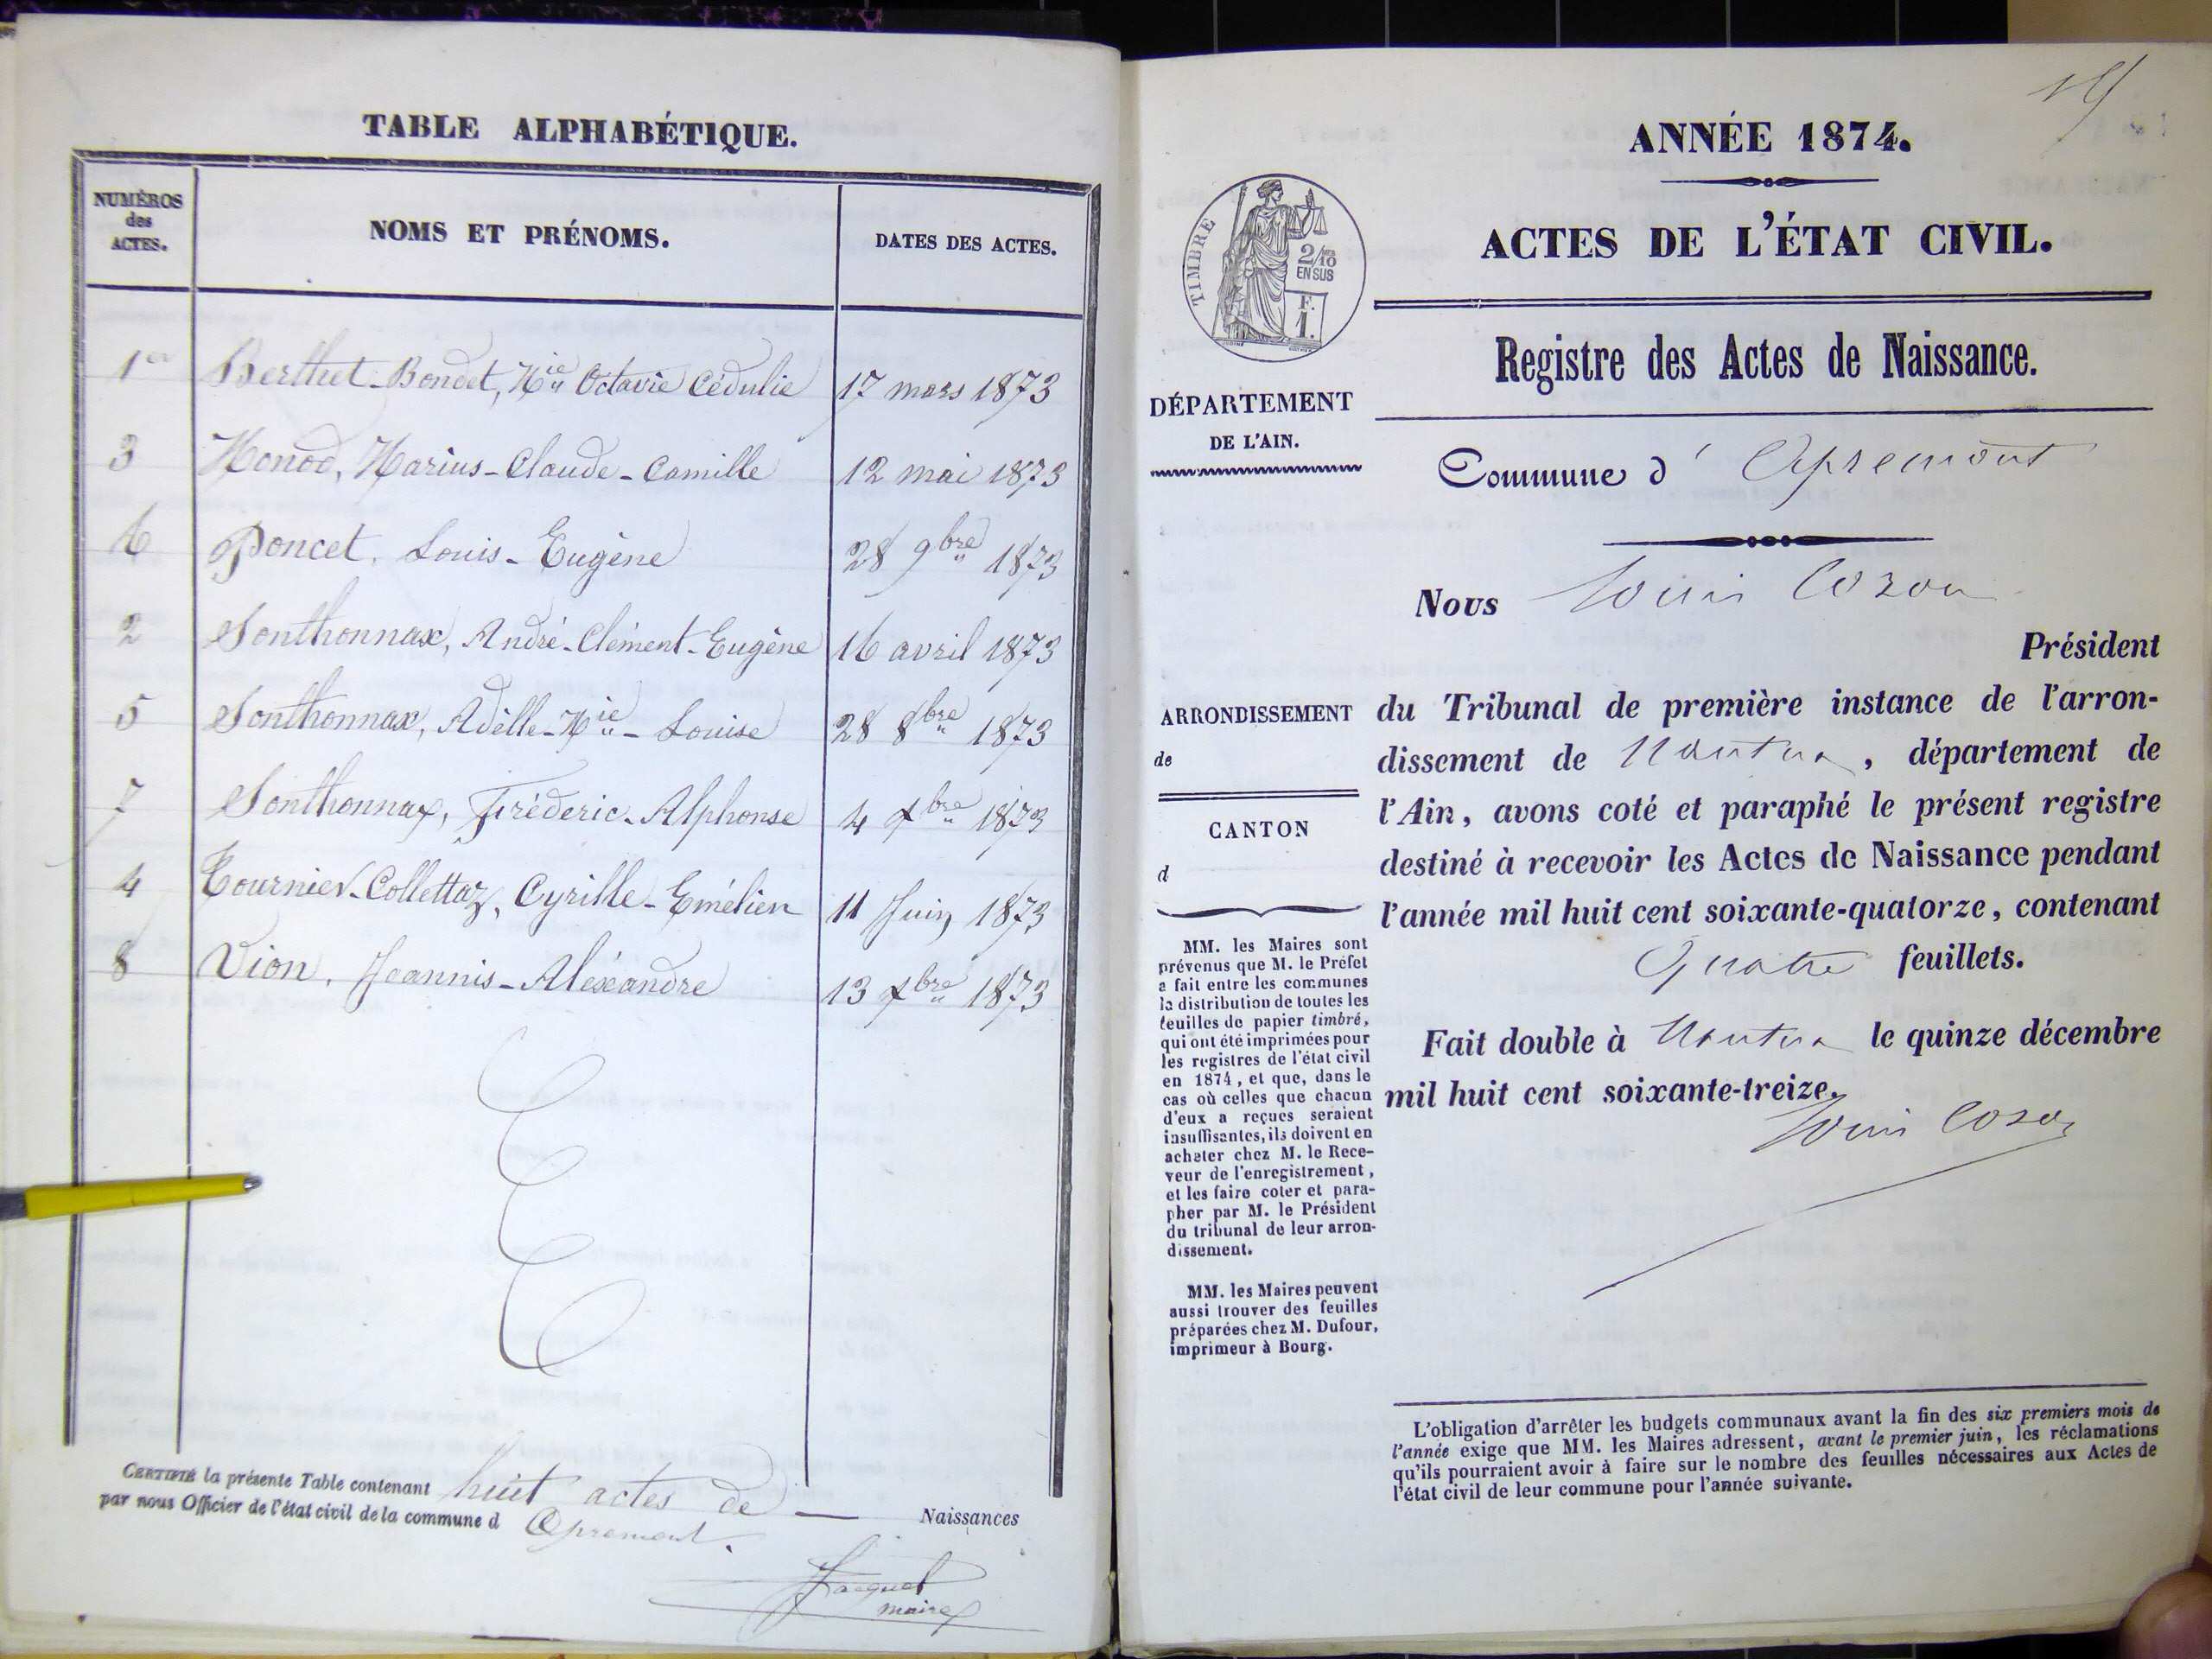 TABLE ALPHABÉTIQUE.
NUMÉROS des ACTES. NOMS ET PRÉNOMS. DATES DES ACTES.
1er Berthet-Bondet, Mie Octavie Cédulie 17 mars 1873
3 Monod, Marius-Claude-Camille 12 mai 1873
6 Poncet, Louis-Eugène 28 9bre 1873
2 Sonthonnax, André-Clément-Eugène 16 avril 1873
5 Sonthonnax, Adèlle-Mie-Louise 28 8bre 1873
7 Sonthonnax, Fréderic-Alphonse 4 xbre 1873
4 Tournier-Collettaz, Cyrille-Emélien 11 Juin 1873
8 Vion, Jeannis-Aléxandre 13 xbre 1873
CERTIFIÉ la présente Table contenant huit actes de — Naissances
par nous Officier de l'état civil de la commune d Apremont.
Jacquet
maire
ANNÉE 1874.
ACTES DE L'ÉTAT CIVIL.
TIMBRE
2/10
EN SUS
F.
1.
DÉPARTEMENT
DE L'AIN.
ARRONDISSEMENT
de
CANTON
d
MM. les Maires sont
prévenus que M. le Préfet
a fait entre les communes
la distribution de toutes les
feuilles de papier timbré,
qui ont été imprimées pour
les registres de l'état civil
en 1874, et que, dans le
cas où celles que chacun
d'eux a reçues seraient
insuffisantes, ils doivent en
acheter chez M. le Rece-
veur de l'enregistrement,
et les faire coter et para-
pher par M. le Président
du tribunal de leur arron-
dissement.
MM. les Maires peuvent
aussi trouver des feuilles
préparées chez M. Dufour,
imprimeur à Bourg.
Registre des Actes de Naissance.
Commune d' Apremont
Nous Louis Cozon
Président
du Tribunal de première instance de l'arron-
dissement de Nantua, département de
l'Ain, avons coté et paraphé le présent registre
destiné à recevoir les Actes de Naissance pendant
l'année mil huit cent soixante-quatorze, contenant
Quatre feuillets.
Fait double à Nantua le quinze décembre
mil huit cent soixante-treize.
Louis Cozon
L'obligation d'arrêter les budgets communaux avant la fin des six premiers mois de
l'année exige que MM. les Maires adressent, avant le premier juin, les réclamations
qu'ils pourraient avoir à faire sur le nombre des feuilles nécessaires aux Actes de
l'état civil de leur commune pour l'année suivante.